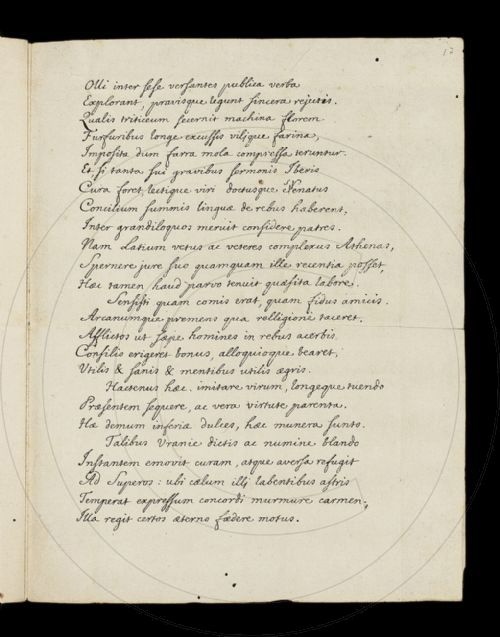 17
Olli inter sese versantes publica verba
Explorant, pravisque legunt sincera rejectis.
Qualis triticeum secernit machina florem
Furfuribus longe excussis vilique farina,
Imposita dum farra mola compressa teruntur.
Et si tanta sui gravibus sermonis Iberis
Cura foret, lectique viri doctusque Venatus
Concilium summis linguæ de rebus haberent,
Inter grandiloquos meruit considere patres.
Nam Latium vetus ac veteres complexus Athenas,
Spernere jure suo quamquam ille recentia posset,
Hæc tamen haud parvo tenuit quæsita labore.
Sensisti quam comis erat, quam fidus amicis.
Arcanumque premens qua relligione taceret.
Afflictos ut sæpe homines in rebus acerbis
Consilio erigeret bonus, alloquioque bearet,
Utilis & sanis & mentibus utilis ægris.
Hactenus hæc. imitare virum, longeque tuendo
Præsentem sequere, ac vera virtute parenta.
Hæ demum inferiæ dulces, hæc munera sunto.
Talibus Uranie dictis ac numine blando
Instantem emovit curam, atque aversa refugit
Ad Superos: ubi cælum illi labentibus astris
Temperat expressum concordi murmure carmen,
Illa regit certos æterno fædere motus.